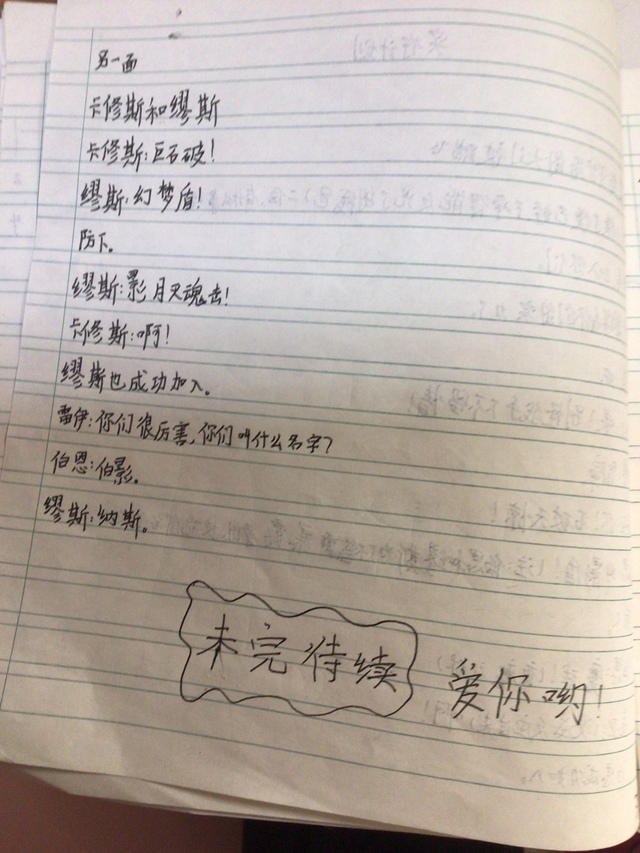 另一面
卡修斯和缪斯
卡修斯:巨石破!
缪斯:幻梦盾!
防下。
缪斯:影月灭魂击!
卡修斯:啊!
缪斯也成功加入。
雷伊:你们很厉害,你们叫什么名字?
伯恩:伯影。
缪斯:纳斯。
未完待续
爱你哟!